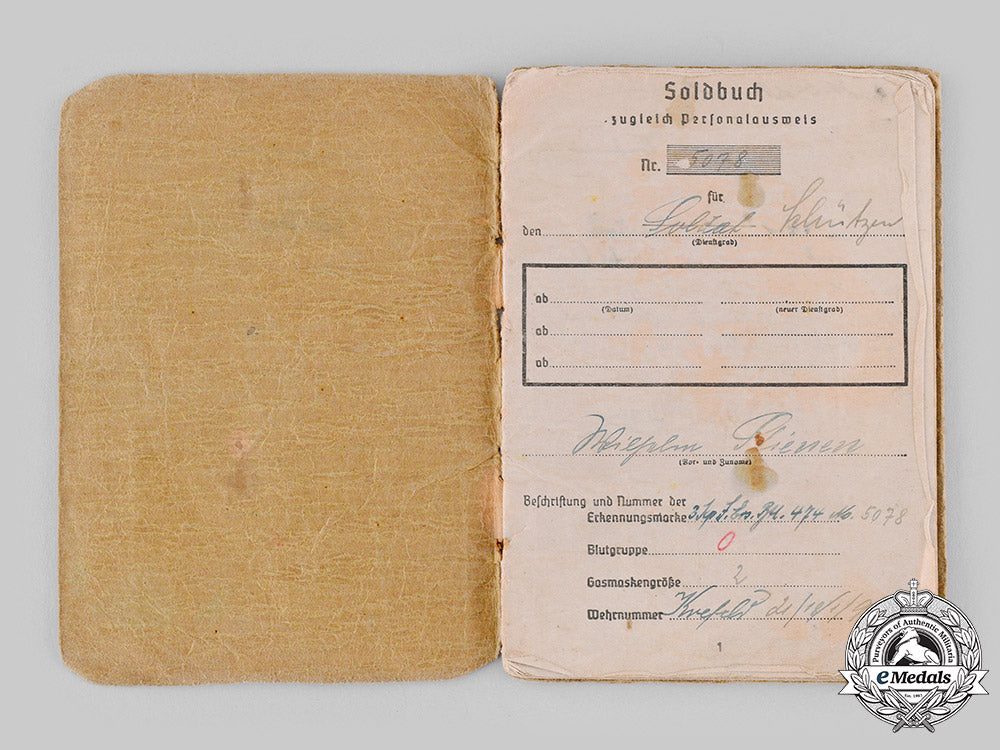 Soldbuch
-zugleich Personalausweis
Nr. 5078
für
den Soldat Schützen
(Dienstgrad)
ab
(Datum) (neuer Dienstgrad)
ab
ab
Wilhelm
(Vor- und Zuname)
Beschriftung und Nummer der
Erkennungsmarke 474 No. 5078
Blutgruppe 0
Gasmaskengröße 2
Wehrnummer Krefeld
1
Purveyors of Authentic Militaria
eMedals